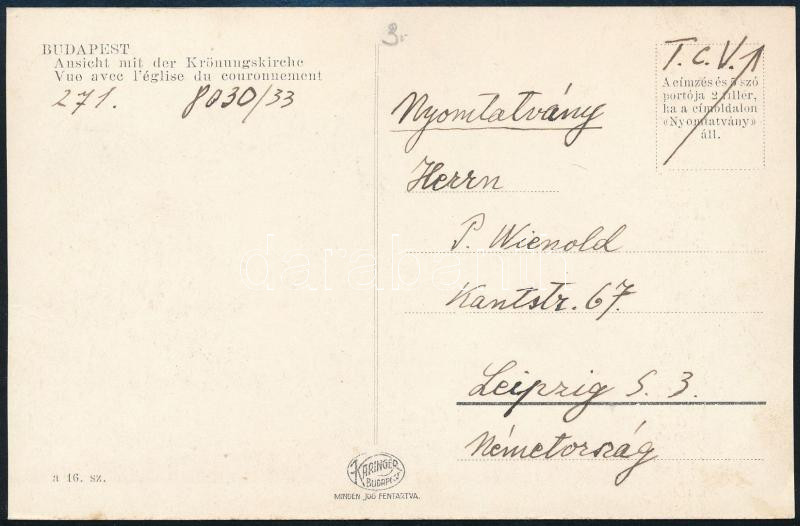 BUDAPEST
Ansicht mit der Krönungskirche
Vue avec l'église du couronnement
271. 8030/33
3.-
T. C. V. 1
A címzés és 5 szó
portója 2 fillér,
ha a címoldalon
«Nyomtatvány»
áll.
Nyomtatvány
Herrn
P. Wienold
Kantstr. 67.
Leipzig S. 3.
Németország
darabanth
a 16. sz.
KARINGER
BUDAPEST
MINDEN JOG FENTARTVA.